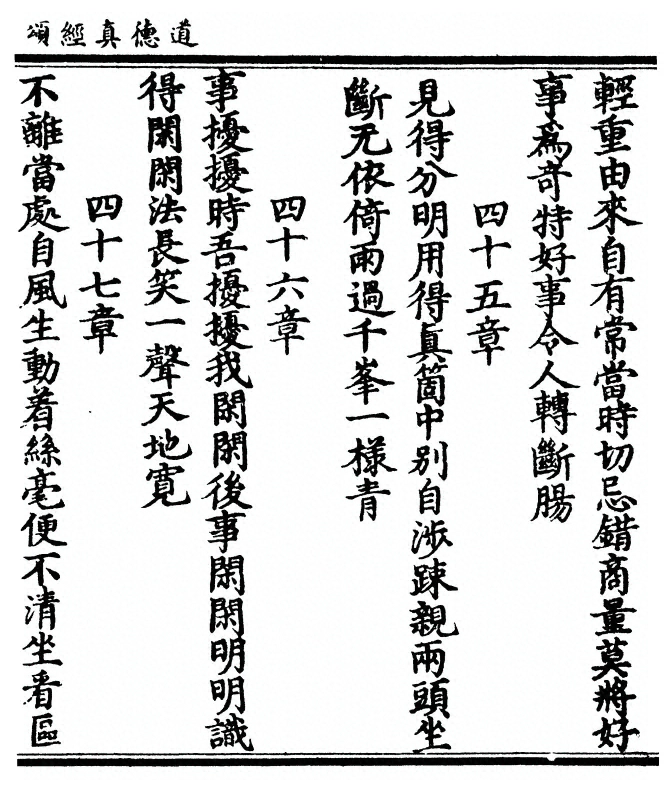 道德真經頌
輕重由來自有常當時切忌錯商量莫將好
事爲奇特好事令人轉斷腸
四十五章
見得分明用得真箇中别自涉踈親兩頭坐
斷无依倚雨過千峯一樣青
四十六章
事擾擾時吾擾擾我閑閑後事閑閑明明識
得閑閑法長笑一聲天地寛
四十七章
不離當處自風生動着絲毫便不清坐看區